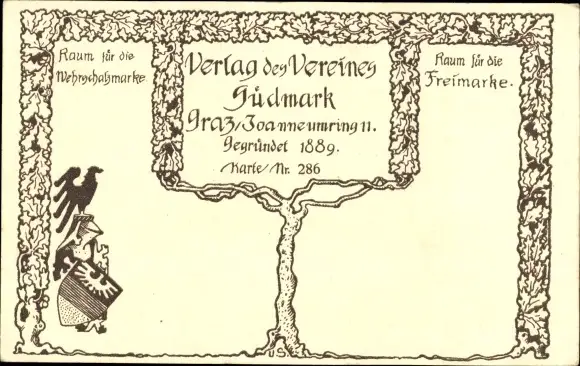 Raum für die
Wehrschatzmarke.
Verlag des Vereines
Südmark
Graz, Joanneumring 11.
Gegründet 1889.
Karte Nr. 286
Raum für die
Freimarke.